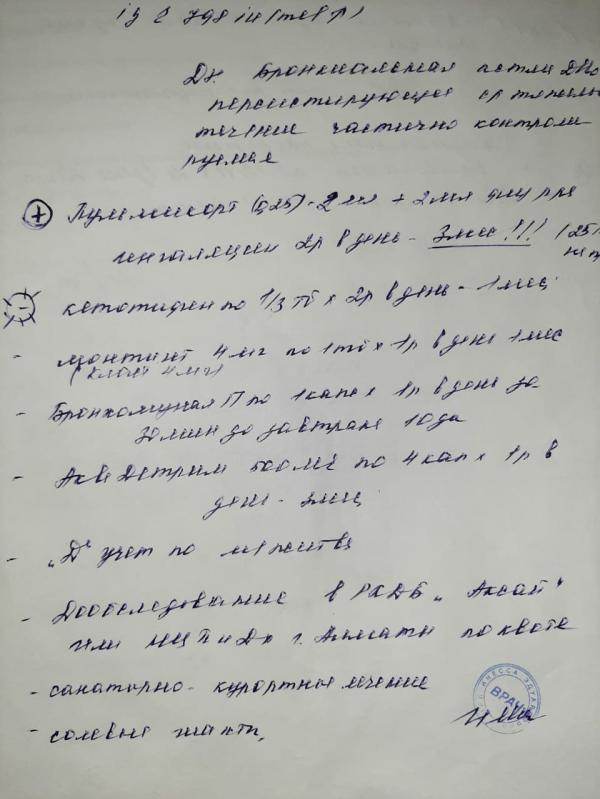 Ds: Бронхиальная астма ДНо
персистирующее ср тяжелы
течение частично контроли
руемая
+ Пульмикорт (0,25) - 2 мл + 2мл
ингаляции 2р в день - 3мес !!! (25
- кетотифен по 1/3 тб х 2р в день - 1мес
- монтинт 4мг по 1тб х 1р в день 1мес
(4мг)
- Бронхомунал П по 1капс х 1р в день за
30мин до завтрака 10дн
- АкваДетрим 500МЕ по 4 кап х 1р в
день - 3мес
- "Д" учет по м/жительства
- Дообследование в РКДБ "Аксай"
или НЦПиДх г. Алматы по квоте
- санаторно-курортное лечение
- солевые шахты,
ИНЕССА
ВРАЧ